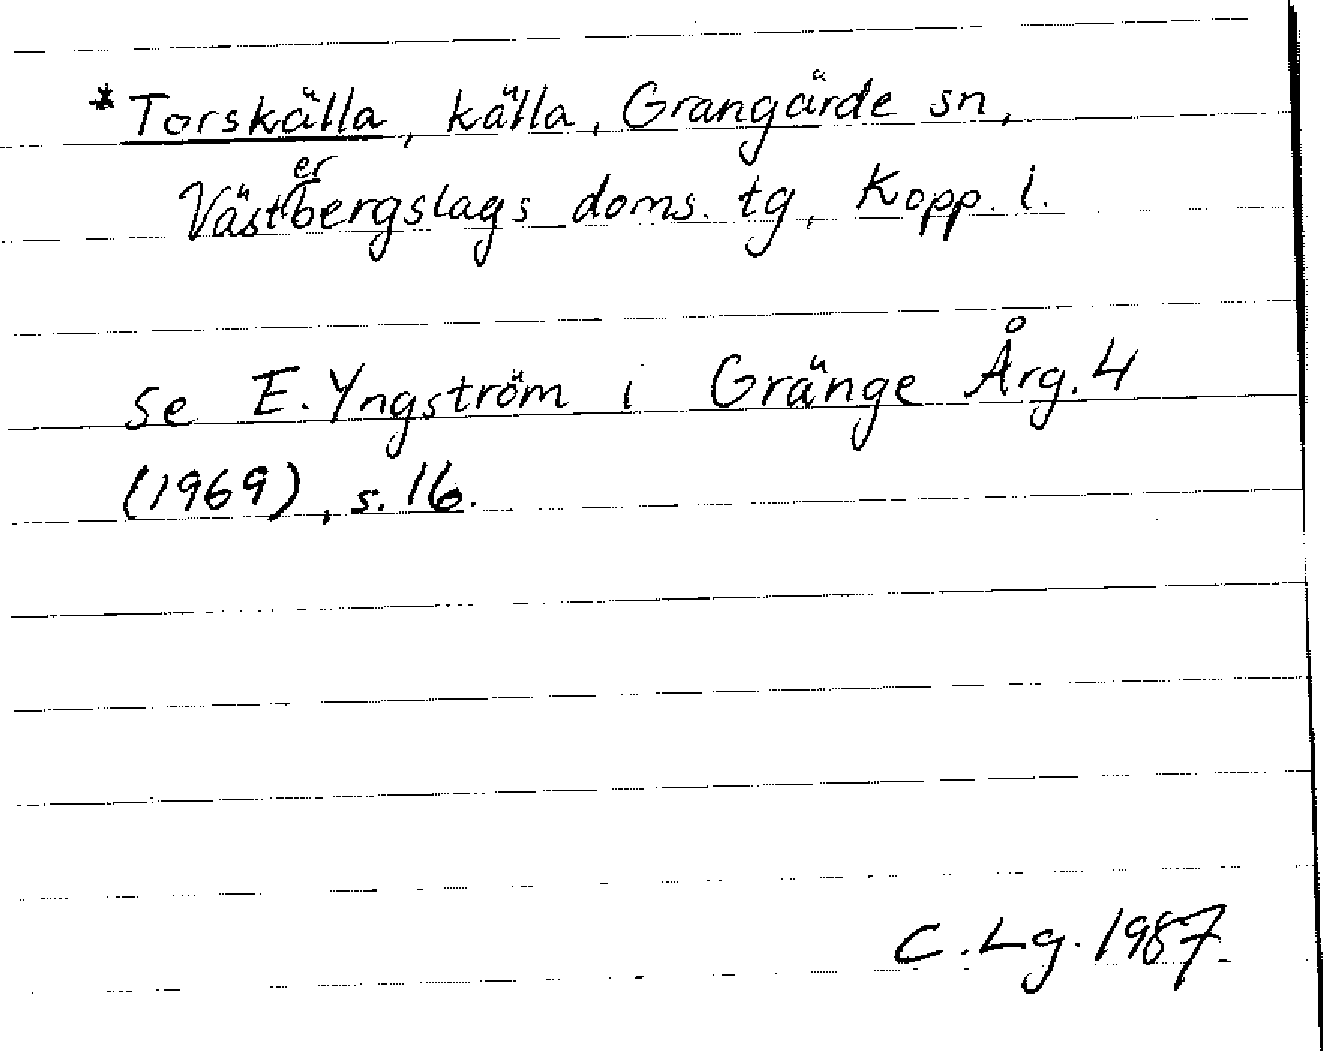 *Torskälla, källa, Grangärde sn,
Västerbergslags doms. tg, Kopp. l.
se E. Yngström i Gränge Årg. 4
(1969), s. 16.
C. Lg. 1987.